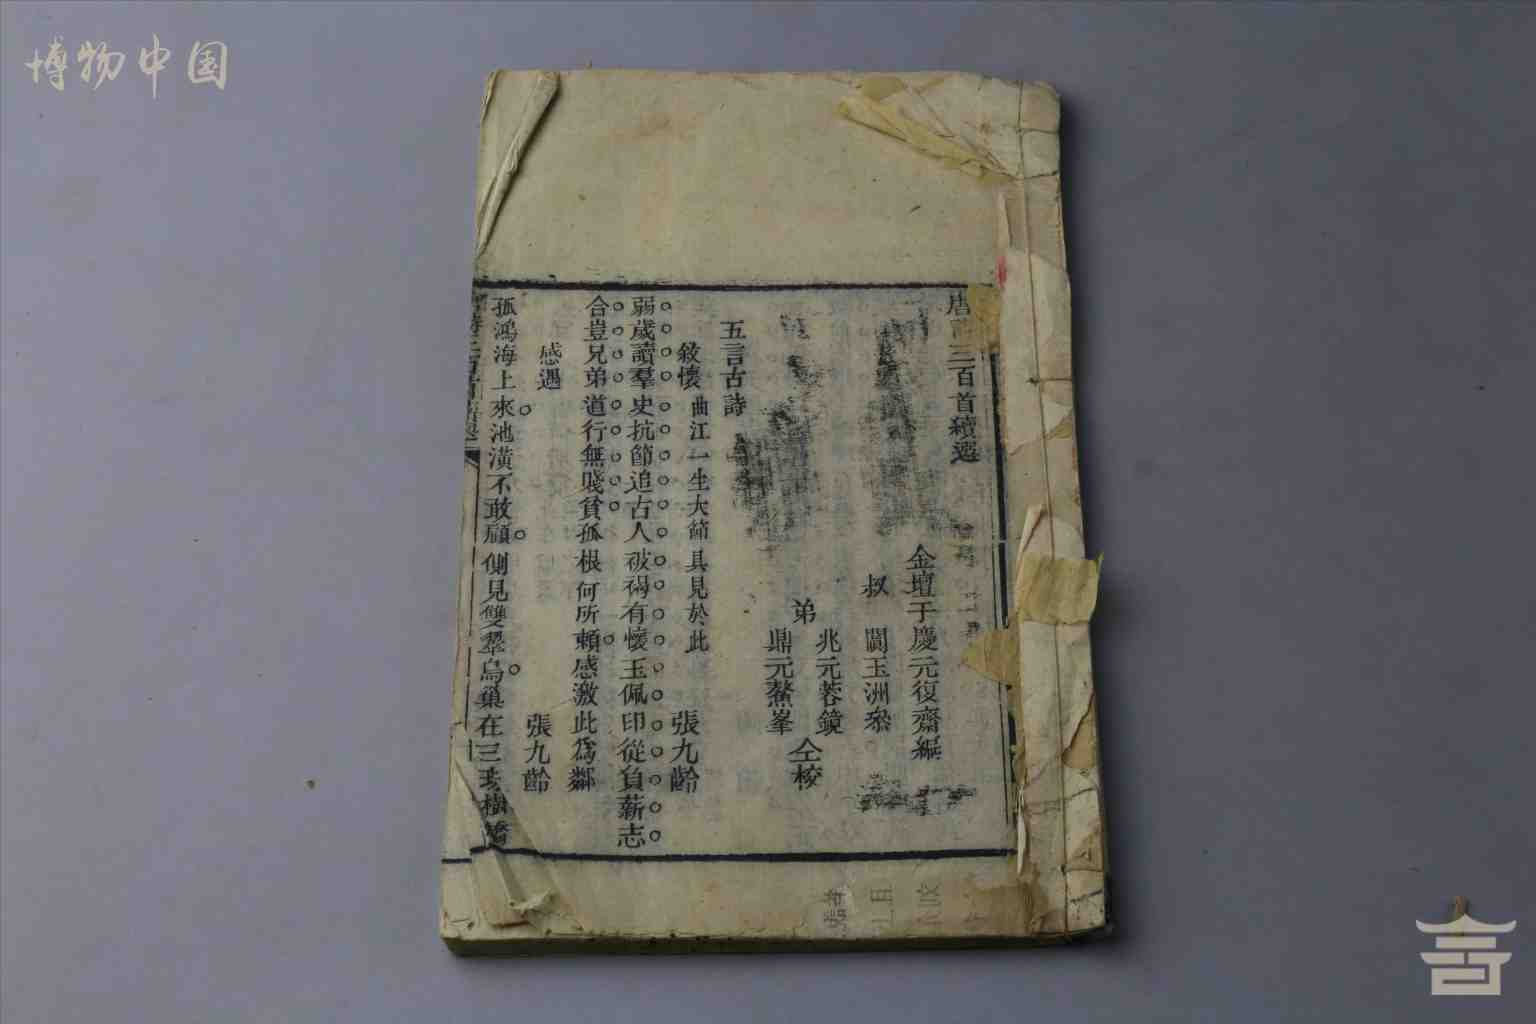 博物中国
唐詩三百首續選
金壇于慶元復齋編
叔 閬玉洲叅
兆元蓉鏡
弟
鼎元鰲峯
仝校
五言古詩
敘懷 曲江一生大節具見於此 張九齡
弱歲讀羣史抗節追古人被褐有懷玉佩印從負薪志
合豈兄弟道行無賤貧孤根何所賴感激此爲鄰
感遇 張九齡
孤鴻海上來池潢不敢顧側見雙翠鳥巢在三珠樹